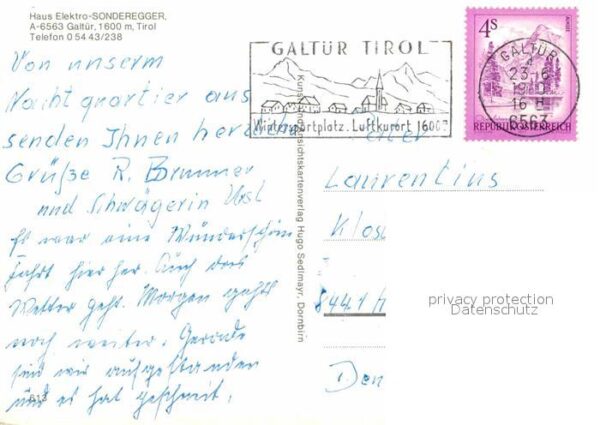 Haus Elektro-SONDEREGGER,
A-6563 Galtür, 1600 m, Tirol
Telefon 0 54 43/238
Von unserm
Nachtquartier aus
senden Ihnen
Grüße R. Brunner
und Schwägerin Ursl
Es war eine Wunderschöne
Fahrt hier her. Auch das
Wetter geht. Morgen gehts
noch weiter. Gerade
sind wir aufgestanden
und es hat geschneit.
613
Kunst- und Ansichtskartenverlag Hugo Sedlmayr, Dornbirn
GALTÜR TIROL
Wintersportplatz. Luftkurort 1600
4S
REPUBLIK ÖSTERREICH
GALTÜR
23.-6.
16 H
6563
Laurentius
Klos
8441
Den
privacy protection
Datenschutz